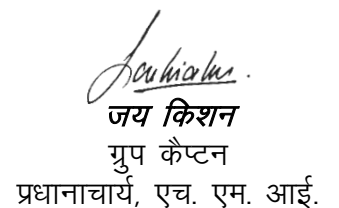 जय किशन
ग्रुप कैप्टन
प्रधानाचार्य, एच. एम. आई.